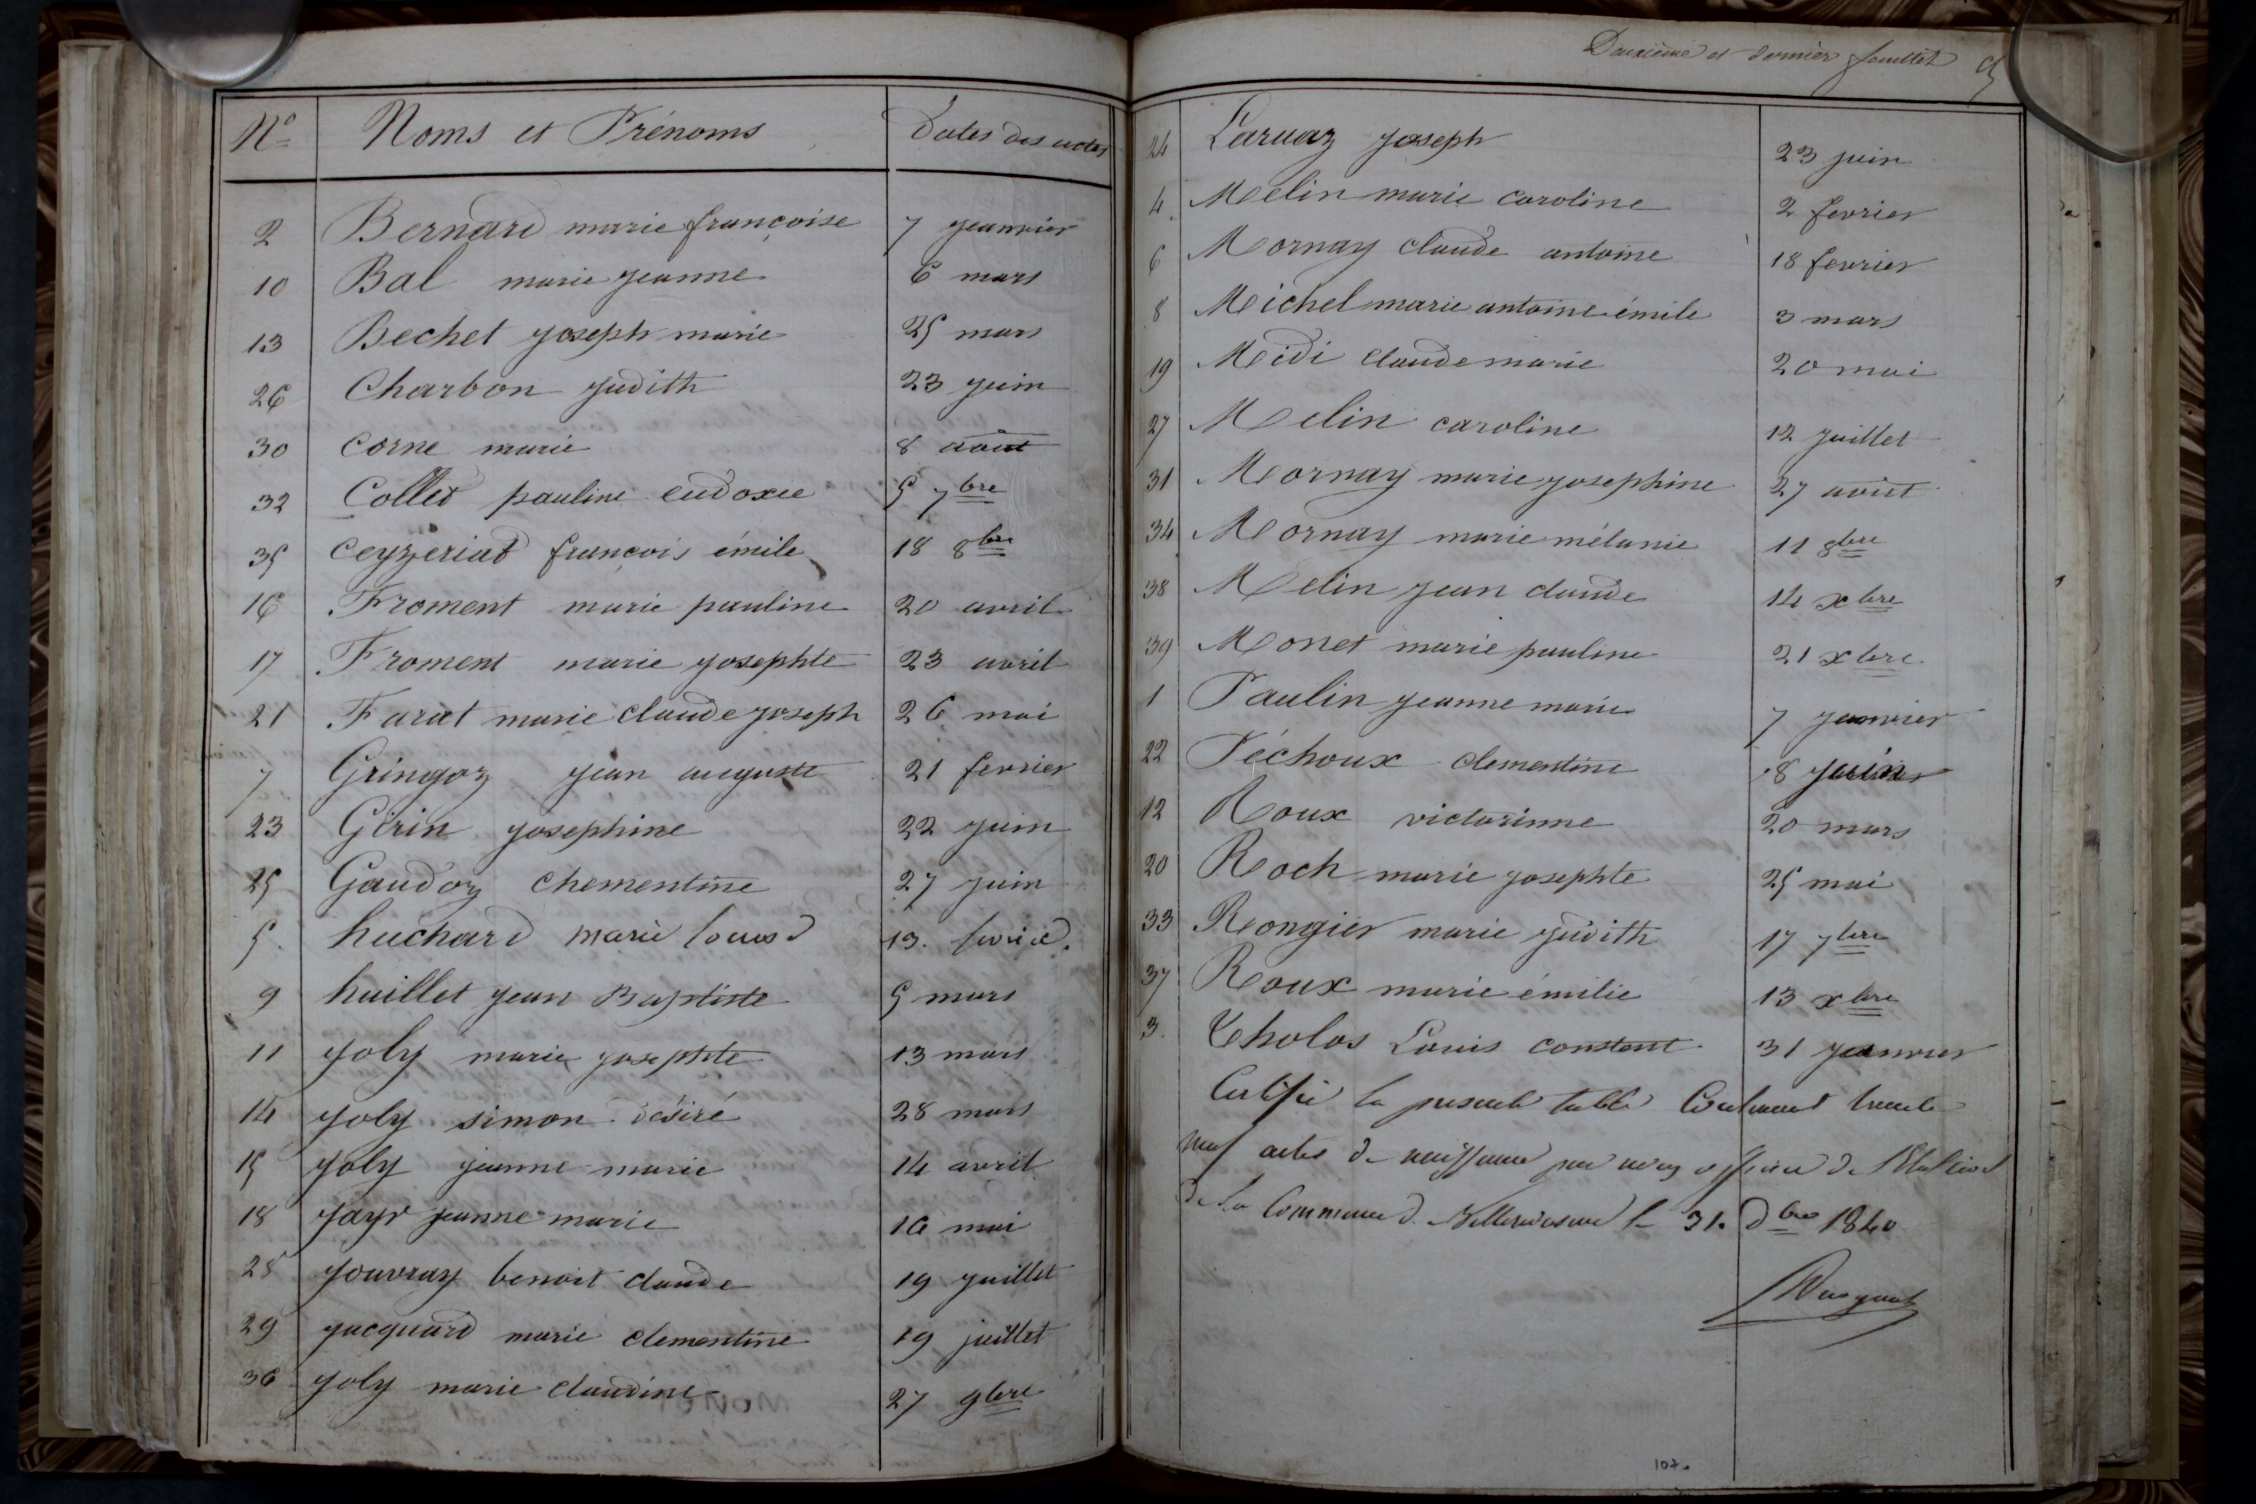 No Noms et Prénoms Dates des actes
2 Bernard marie françoise 7 jeanvier
10 Bal marie jeanne 6 mars
13 Bechet joseph marie 25 mars
26 Charbon judith 23 juin
30 Corne marie 8 août
32 Collet pauline eudoxie 5 7bre
35 Ceyzeriat françois émile 18 8bre
16 Froment marie pauline 20 avril
17 Froment marie josephte 23 avril
21 Farat marie claude joseph 26 mai
7 Gringoz jean auguste 21 fevrier
23 Girin josephine 22 juin
25 Gaudoz chementine 27 juin
5. huchard marie louisd 13.
9 huillet jean Baptiste 5 mars
11 joly marie josephte 13 mars
14 joly simon désiré 28 mars
15 joly jeanne marie 14 avril
18 jayr jeanne marie 16 mai
28 jouvray benoit claude 19 juillet
29 jacquard marie clementine 19 juillet
36 joly marie claudine 27 9bre
Deuxième et dernier feuillet
24 Laruaz joseph 23 juin
4. Melin marie caroline 2 fevrier
6 Mornay claude antoine 18 fevrier
8 Michel marie antoine émile 3 mars
19 Midi claude marie 20 mai
27 Melin caroline 12 juillet
31 Mornay marie josephine 27 août
34 Mornay marie mélanie 11 8bre
38 Melin jean claude 14 xbre
39 Monet marie pauline 21 xbre
1 Paulin jeanne marie 7 janvier
22 Péchoux clementine 8 juin
12 Roux victorinne 20 mars
20 Roch marie josephte 25 mai
33 Rongier marie judith 17 7bre
37 Roux marie émilie 13 xbre
3. Tholos Louis constant 31 jeanvier
Certifié la presente table Contenant trente
neuf actes de naissance par nous officier de l'Etat Civil
de la Commune d. le 31. Dbre 1840
107.